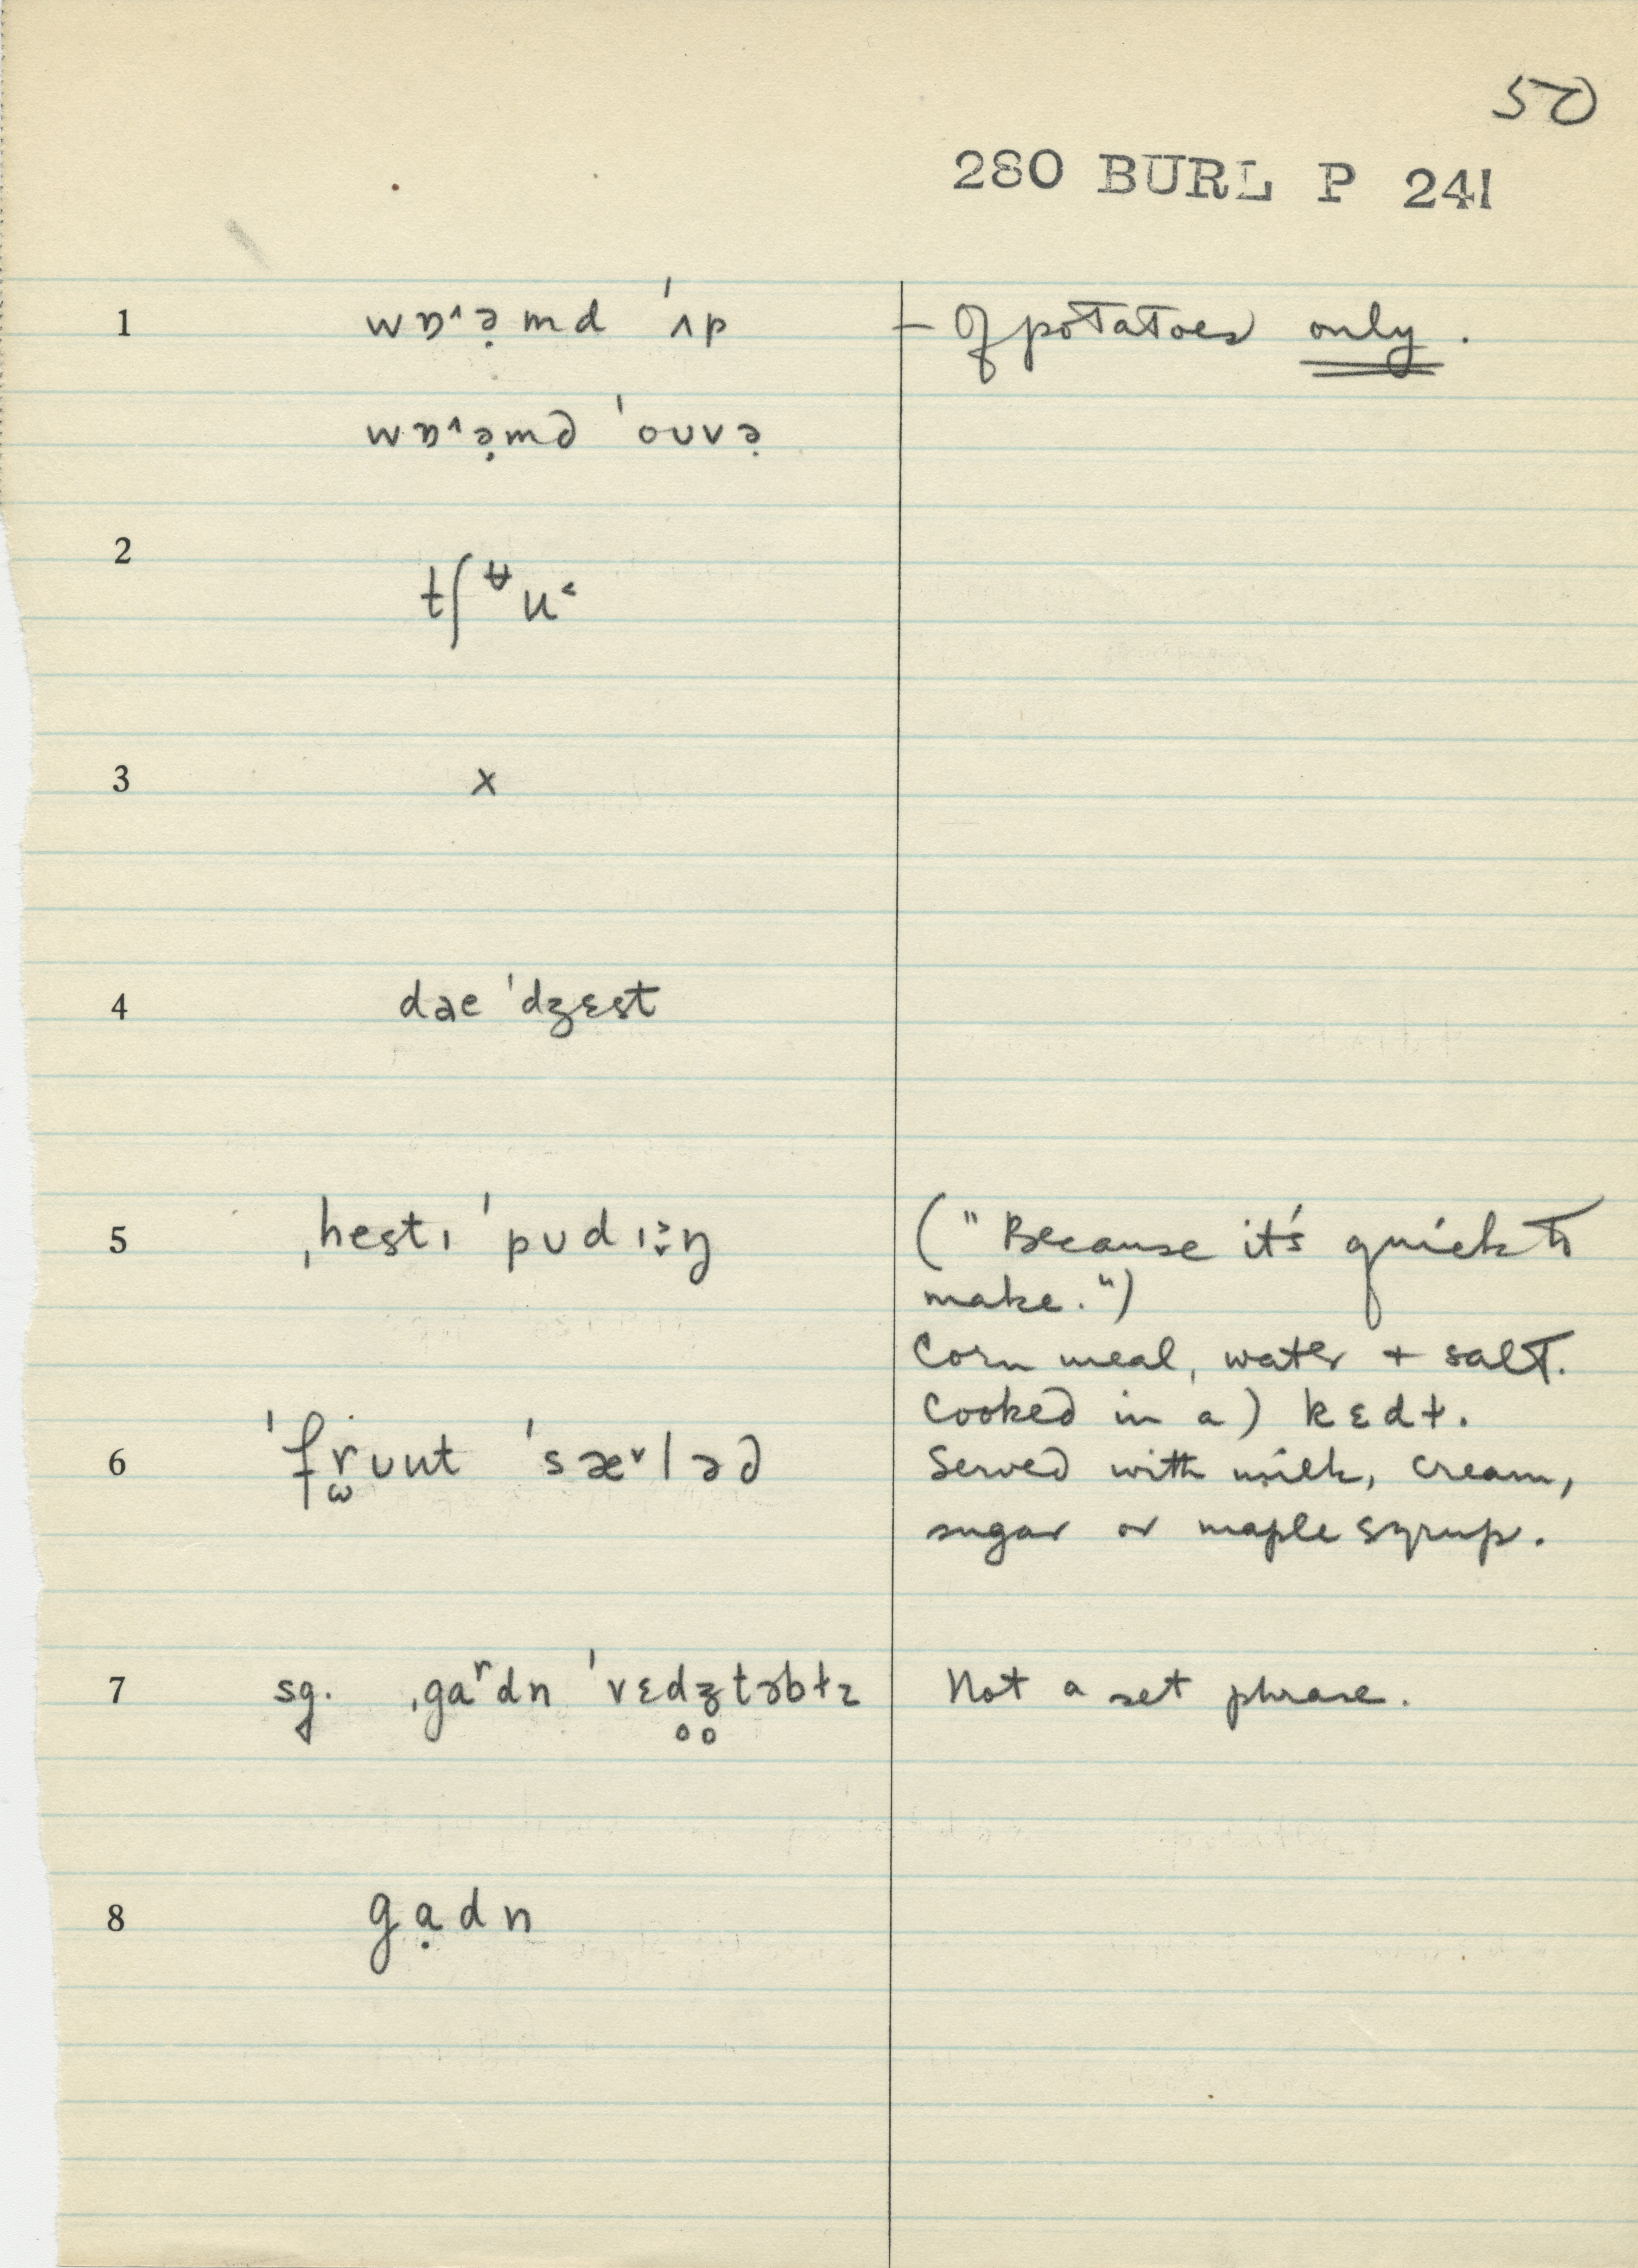 50
280 BURL P 241
1 wɒ˄ə̣md ˈʌp – Of potatoes only.
wɒ˄ə̣md ˈouvə̣
2 tʃᵾu˂
3 x
4 dəe ˈdʒɛst
5 ˌhestɪ ˈpʊdɪŋ ("Because it's quick to
make.")
Corn meal, water + salt.
Cooked in a) kɛdɫ.
6 ˈfrʊut ˈsæ˅ləd Served with milk, cream,
sugar or maple syrup.
7 sg. ˌgaʳdn ˈvɛdʒtəbɫz Not a set phrase.
8 gạdn